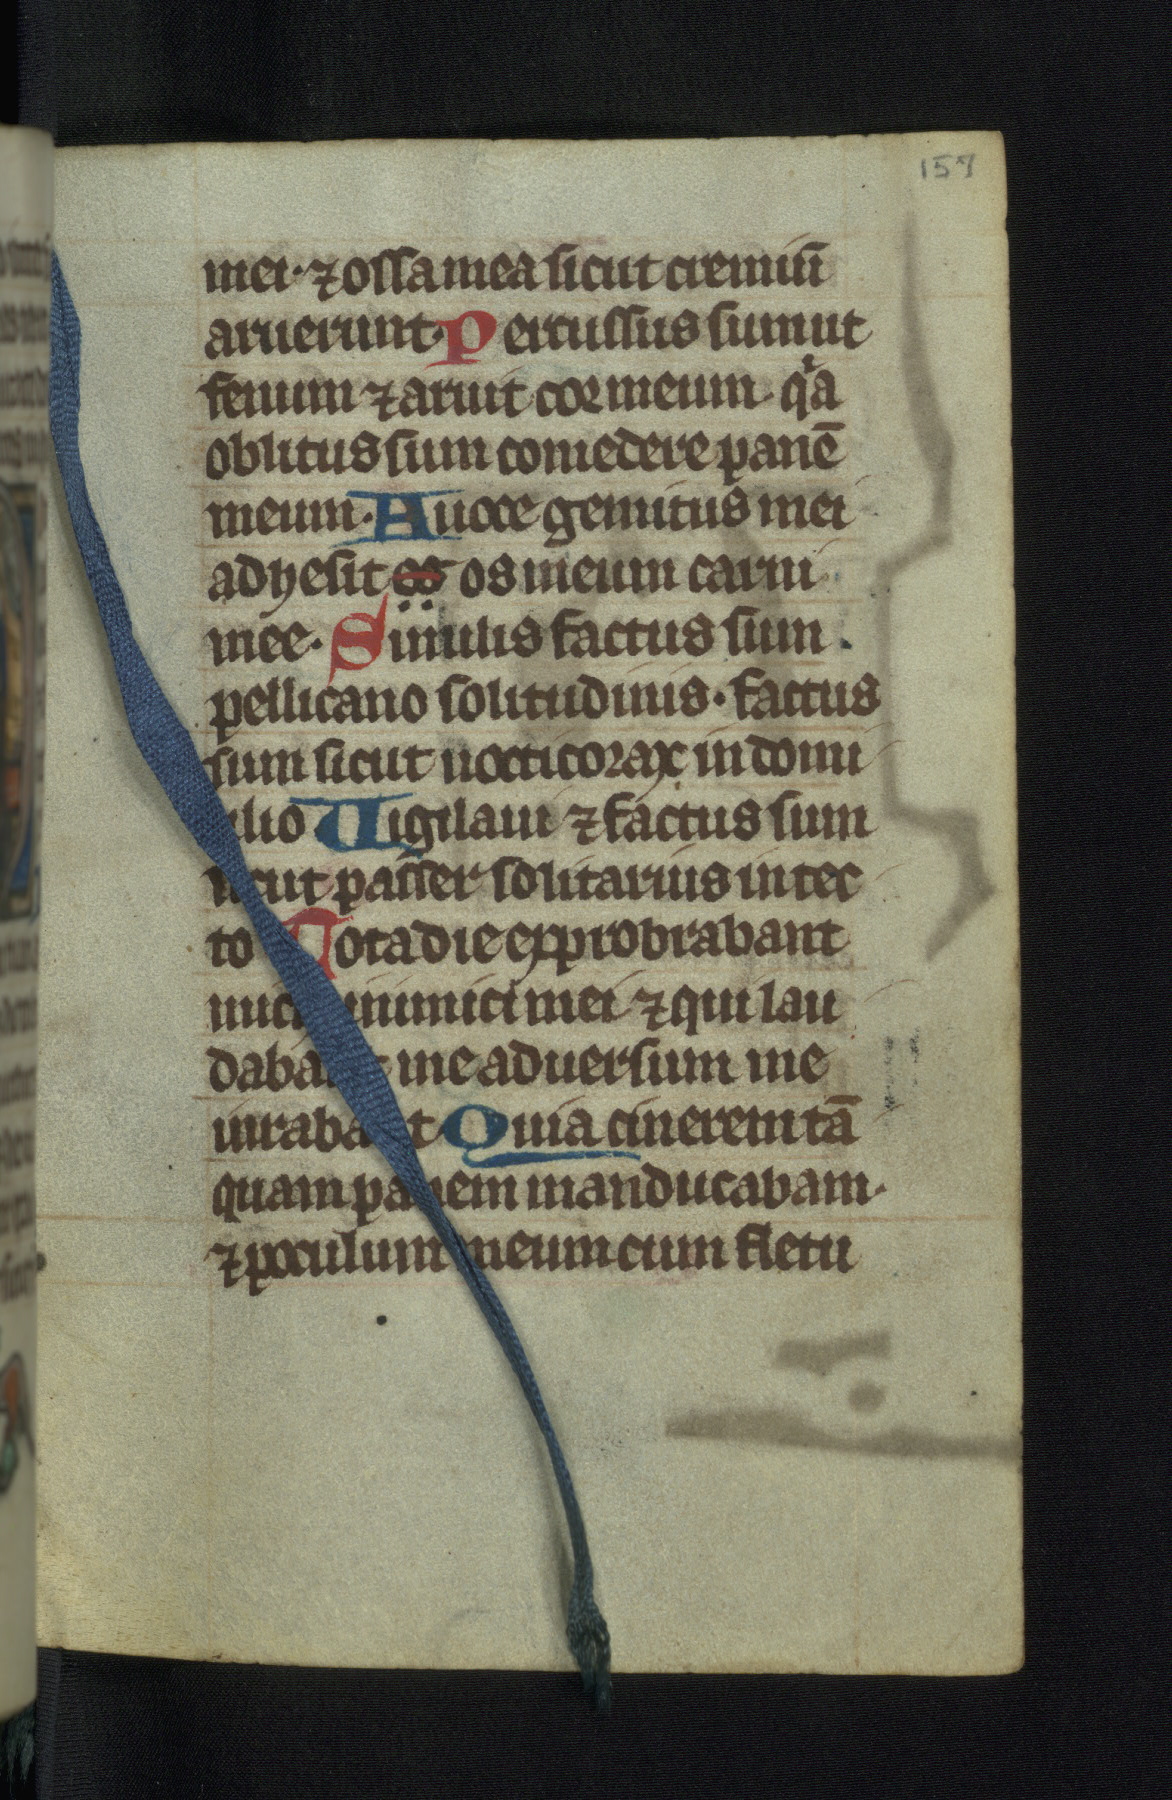 157
mei· ⁊ ossa mea sicut cremiū
aruerunt· Percussus sum ut
fenum ⁊ aruit cor meum· qͥa
oblitus sum comedere panē
meum· A uoce gemitus mei
adhesit os os meum carni
mee· Similis factus sum
pellicano solitudinis· factus
sum sicut nocticorax in domi
ilio Uigilaui ⁊ factus sum
sicut passer solitarius in tec
to Tota die exprobrabant
michi inimici mei ⁊ qui lau
dabant me aduersum me
iurabant Quia cinerem tā
quam panem manducabam·
⁊ poculum meum cum fletu